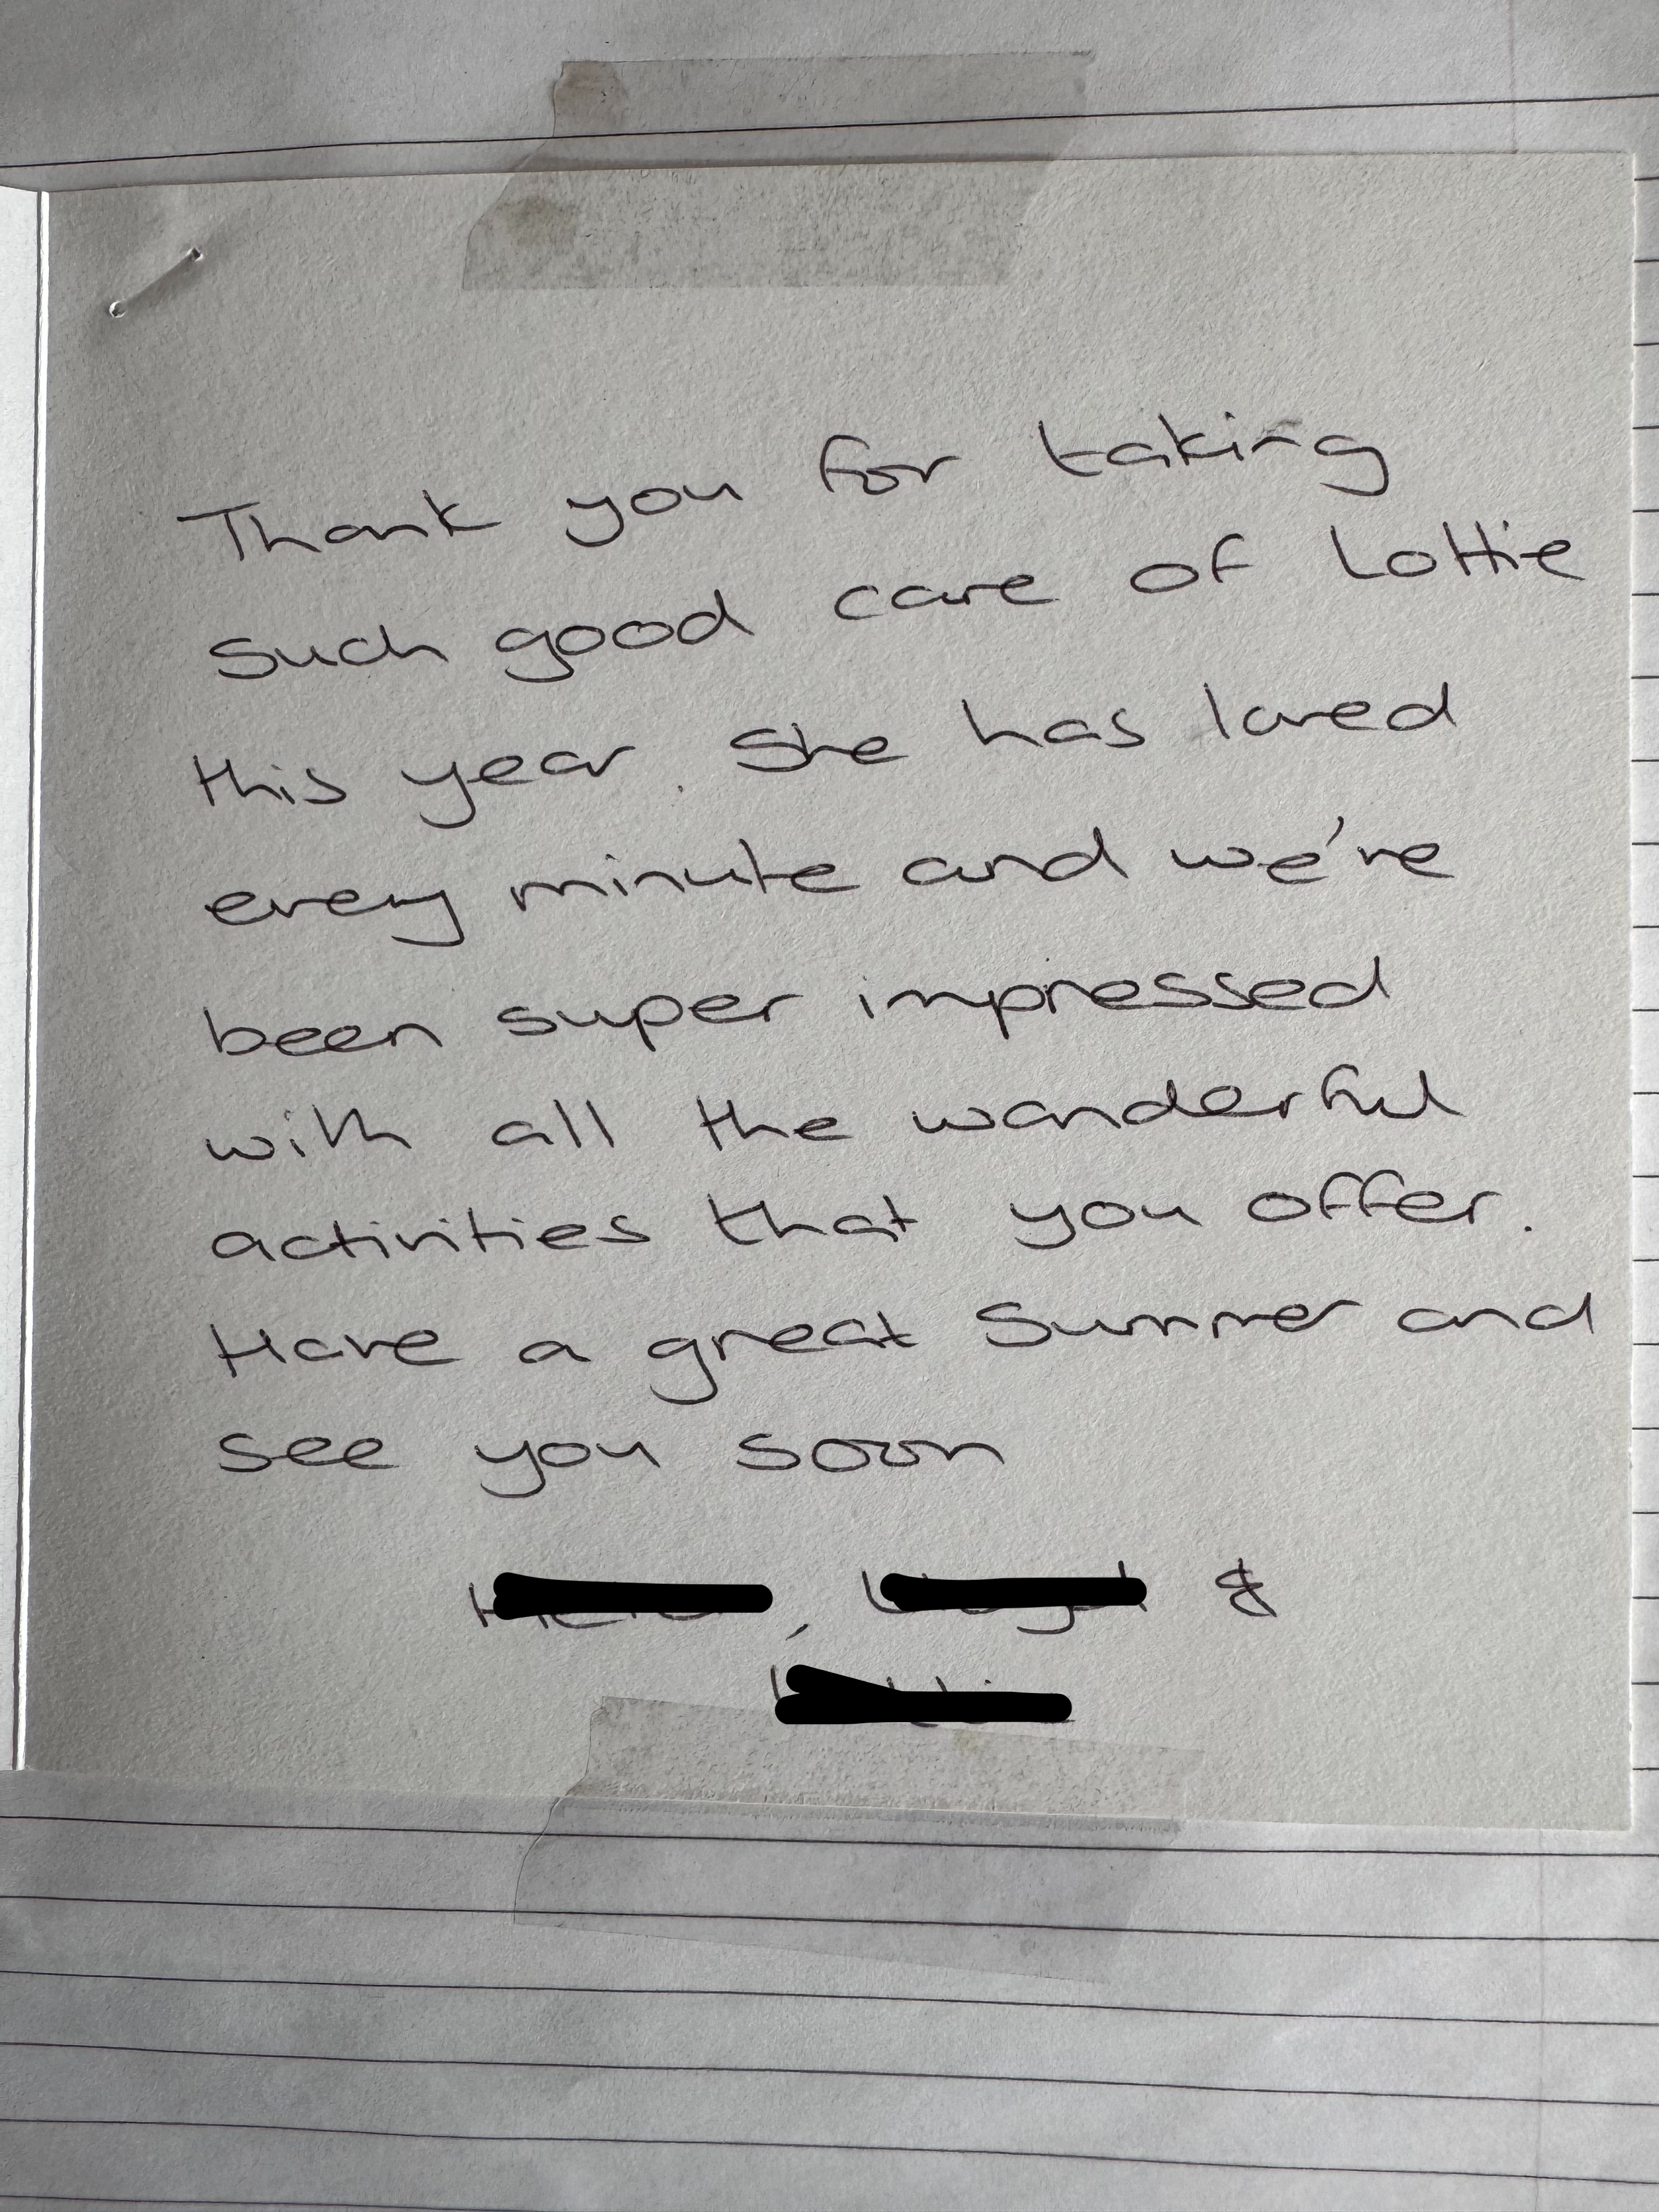 Thank you for taking
such good care of Lottie
this year. She has loved
every minute and we're
been super impressed
with all the wonderful
activities that you offer.
Have a great Summer and
see you soon
, &